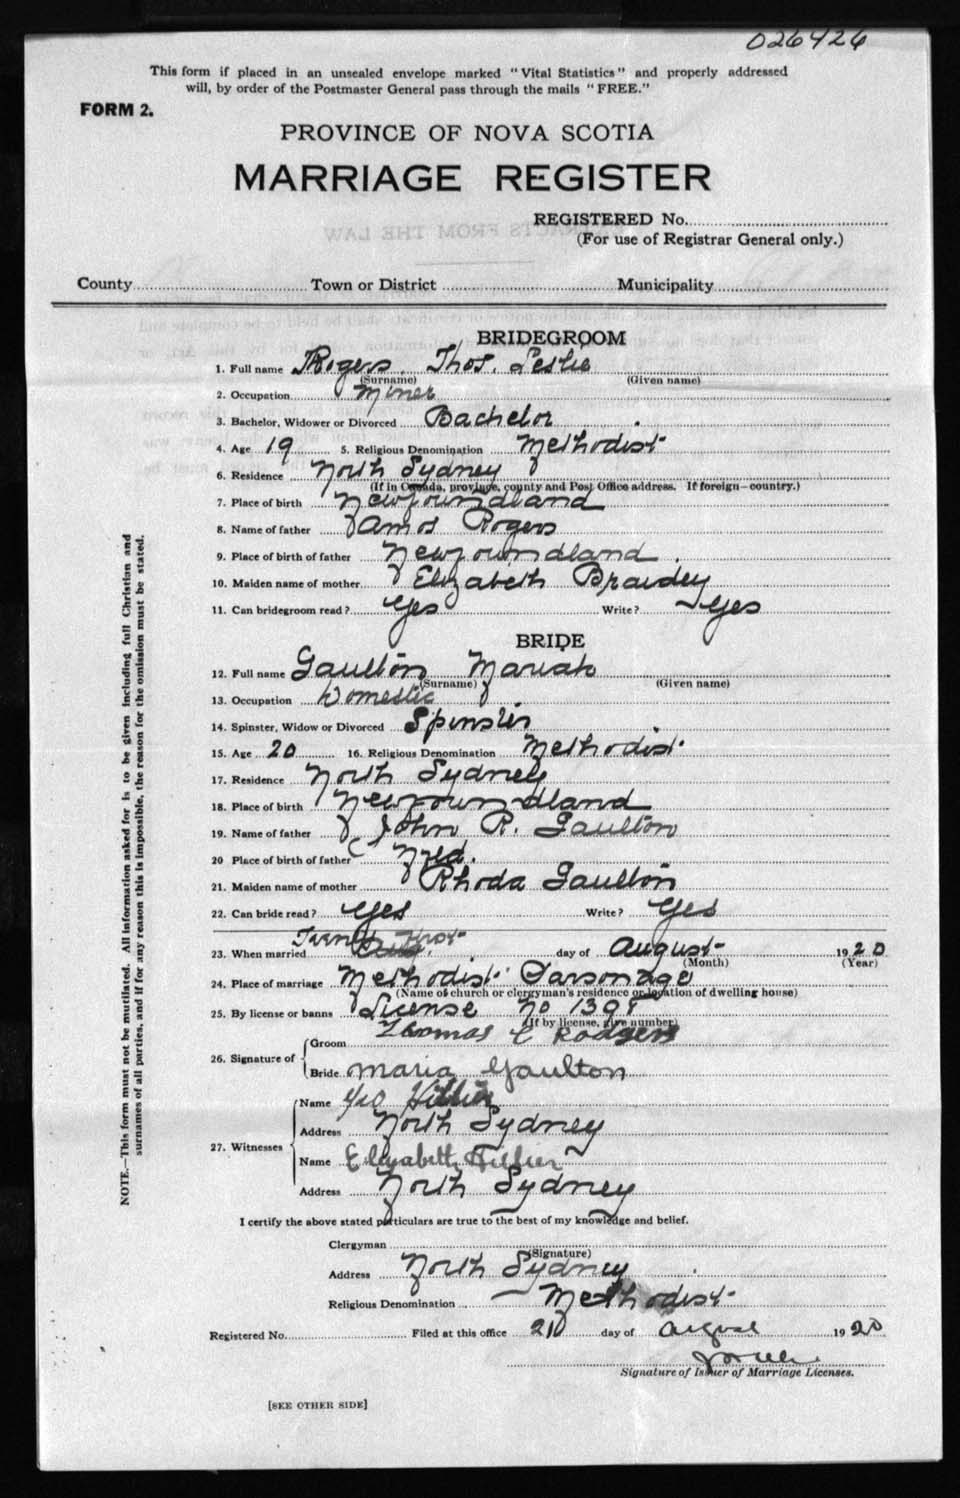 026426
This form if placed in an unsealed envelope marked "Vital Statistics" and properly addressed
will, by order of the Postmaster General pass through the mails "FREE."
FORM 2.
PROVINCE OF NOVA SCOTIA
MARRIAGE REGISTER
REGISTERED No.
(For use of Registrar General only.)
County Town or District Municipality
BRIDEGROOM
1. Full name Rogers Thos. Leslie
(Surname) (Given name)
2. Occupation Miner
3. Bachelor, Widower or Divorced Bachelor
4. Age 19 5. Religious Denomination Methodist
6. Residence North Sydney
(If in Canada, province, county and Post Office address. If foreign—country.)
7. Place of birth Newfoundland
8. Name of father Amos Rogers
9. Place of birth of father Newfoundland
10. Maiden name of mother Elizabeth
11. Can bridegroom read? Yes Write? Yes
BRIDE
12. Full name Gaulton Mariah
(Surname) (Given name)
13. Occupation Domestic
14. Spinster, Widow or Divorced Spinster
15. Age 20 16. Religious Denomination Methodist
17. Residence North Sydney
18. Place of birth Newfoundland
19. Name of father John R. Gaulton
20 Place of birth of father Nfld.
21. Maiden name of mother Rhoda Gaulton
22. Can bride read? Yes Write? Yes
23. When married Twenty First day of August 1920
(Month) (Year)
24. Place of marriage Methodist Parsonage
(Name of church or clergyman's residence or location of dwelling house)
25. By license or banns License No 1398
(If by license, give number)
26. Signature of
Groom Thomas L Rodgers
Bride Maria Gaulton
27. Witnesses
Name Hillier
Address North Sydney
Name Elizabeth Hillier
Address North Sydney
I certify the above stated particulars are true to the best of my knowledge and belief.
Clergyman
(Signature)
Address North Sydney
Religious Denomination Methodist
Registered No. Filed at this office 21 day of August 1920
Signature of Issuer of Marriage Licenses.
[SEE OTHER SIDE]
NOTE.—This form must not be mutilated. All information asked for is to be given including full Christian and
surnames of all parties, and if for any reason this is impossible, the reason for the omission must be stated.